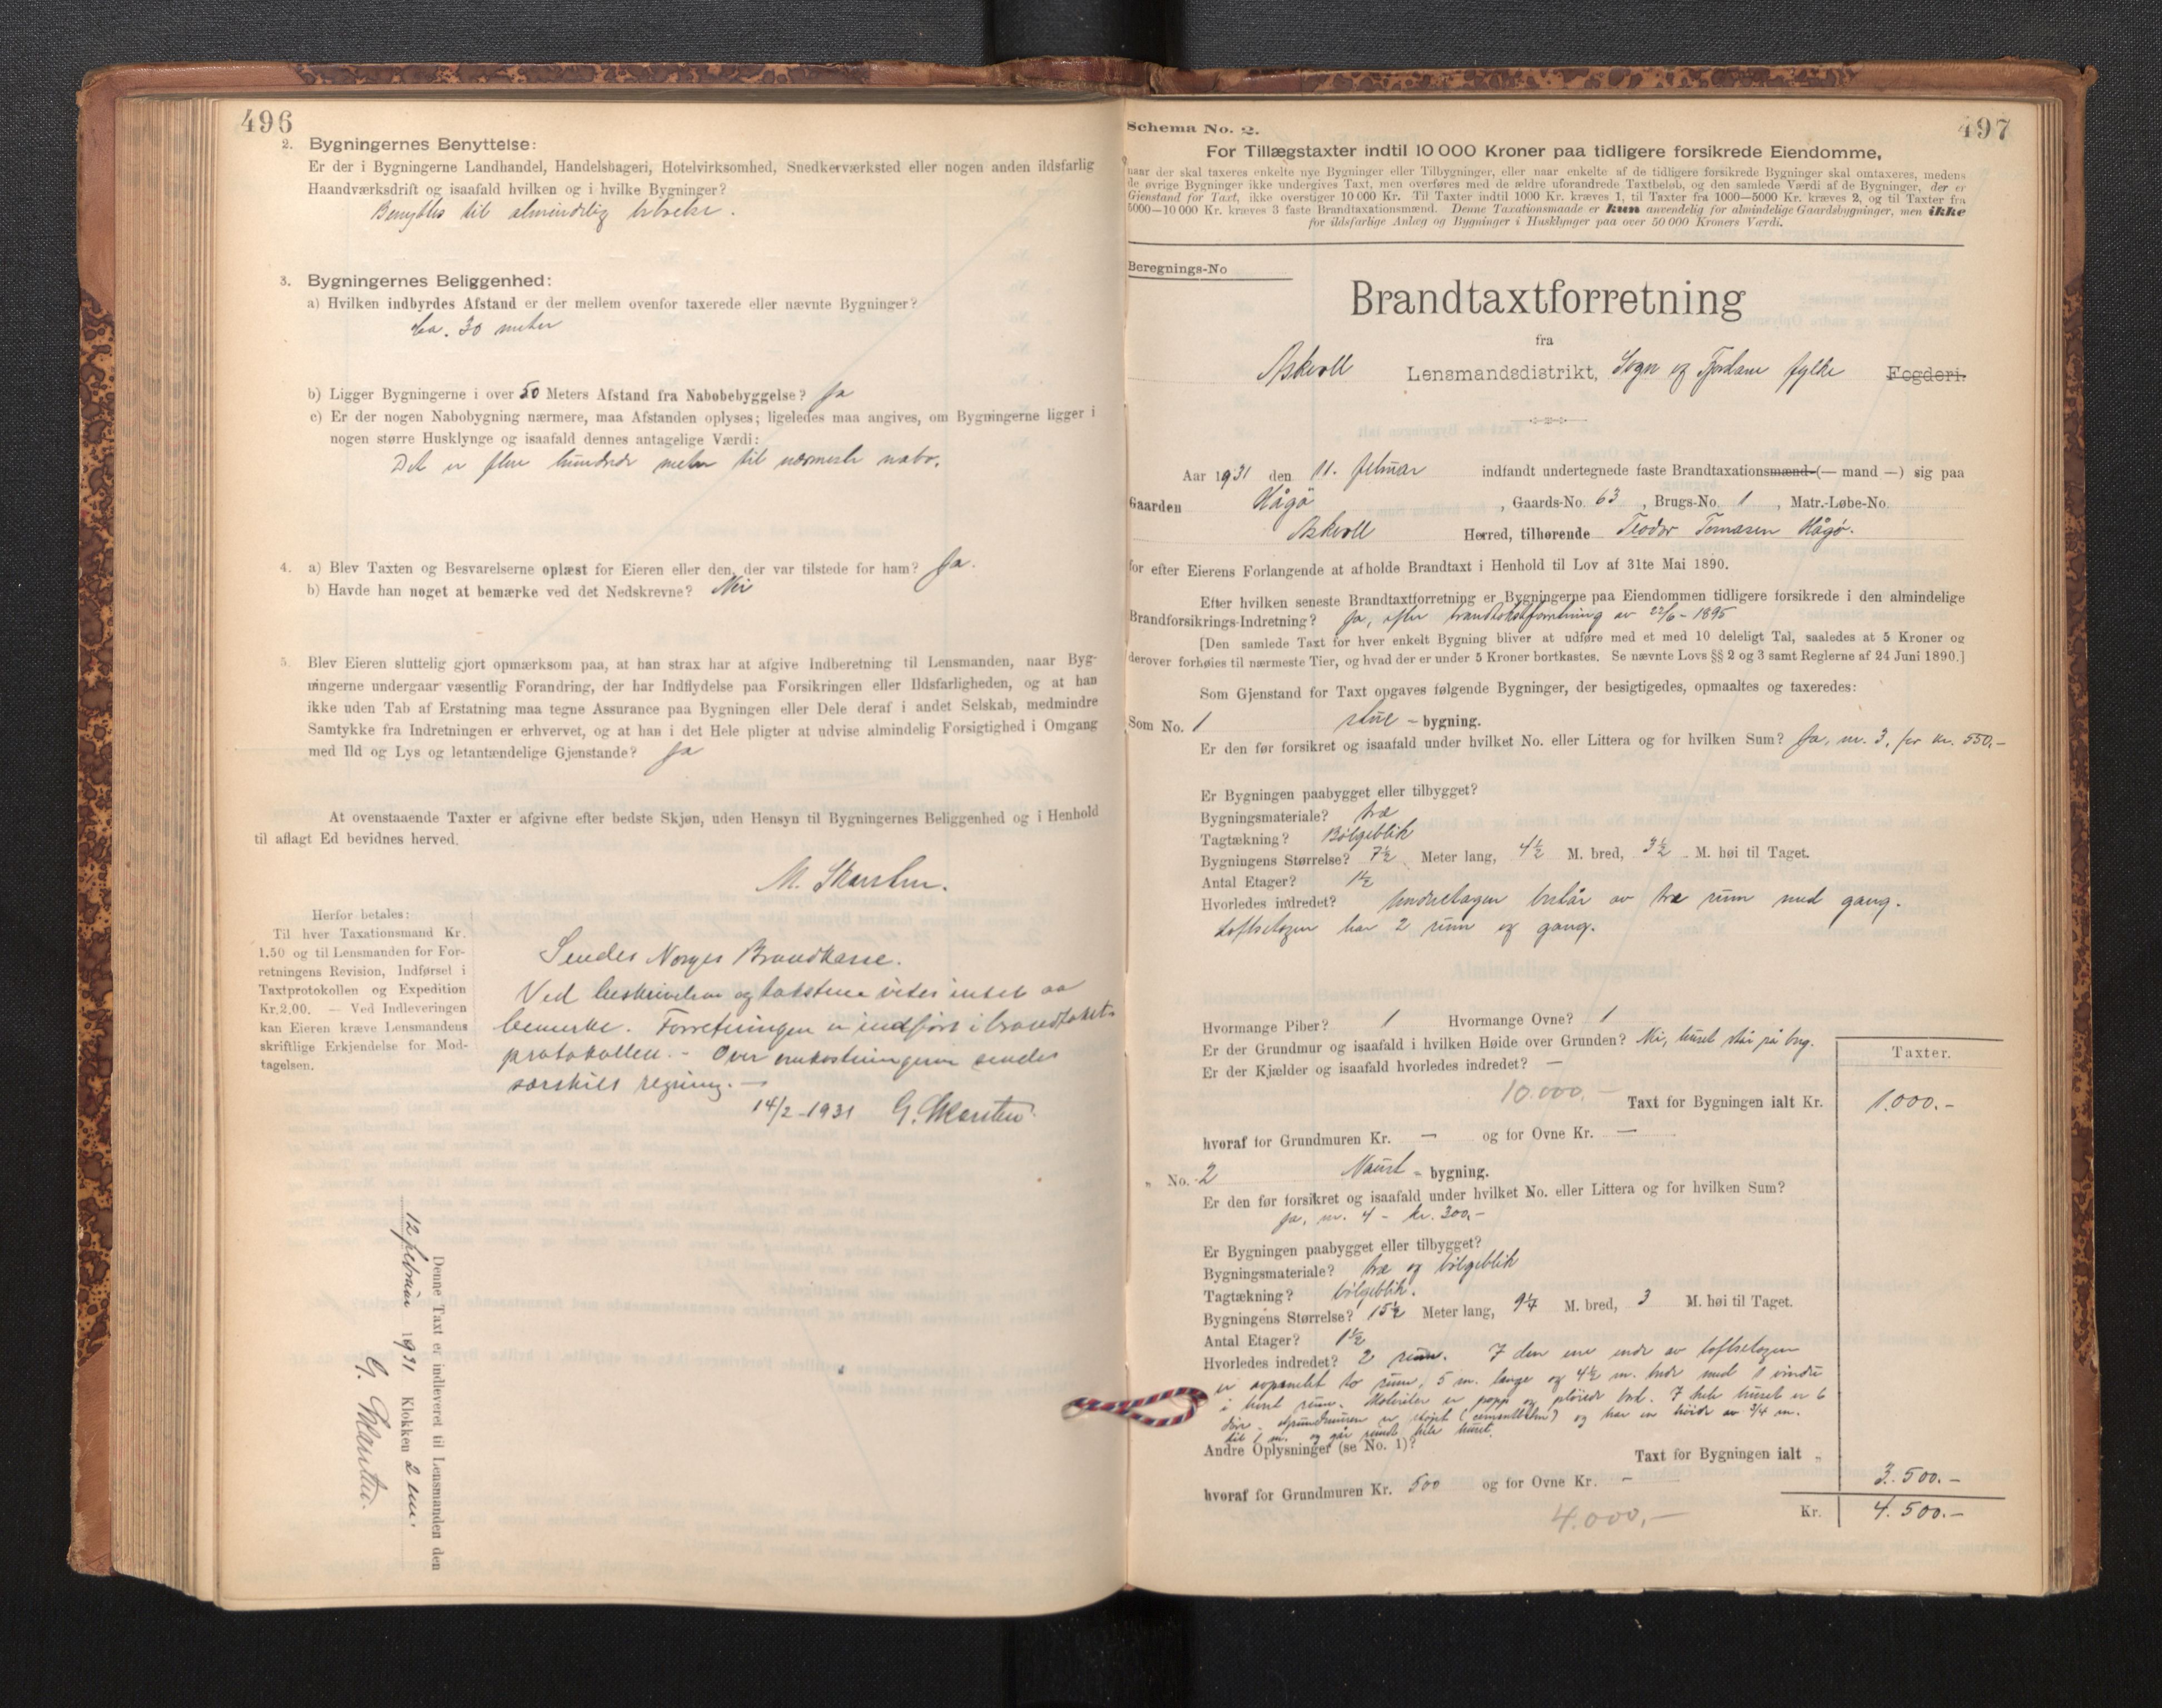 496
2. Bygningernes Benyttelse:
Er der i Bygningerne Landhandel, Handelsbageri, Hotelvirksomhed, Snedkerværksted eller nogen anden ildsfarlig
Haandværksdrift og isaafald hvilken og i hvilke Bygninger?
Benyttes til almindelig
3. Bygningernes Beliggenhed:
a) Hvilken indbyrdes Afstand er der mellem ovenfor taxerede eller nævnte Bygninger?
Ca. 30 meter
b) Ligger Bygningerne i over 50 Meters Afstand fra Nabobebyggelse? Ja
c) Er der nogen Nabobygning nærmere, maa Afstanden oplyses; ligeledes maa angives, om Bygningerne ligger i
nogen større Husklynge og isaafald dennes antagelige Værdi:
Det er flere hundrede meter til nærmeste nabo.
4. a) Blev Taxten og Besvarelserne oplæst for Eieren eller den, der var tilstede for ham? Ja.
b) Havde han noget at bemærke ved det Nedskrevne? Nei
5. Blev Eieren sluttelig gjort opmærksom paa, at han strax har at afgive Indberetning til Lensmanden, naar Byg-
ningerne undergaar væsentlig Forandring, der har Indflydelse paa Forsikringen eller Ildsfarligheden, og at han
ikke uden Tab af Erstatning maa tegne Assurance paa Bygningen eller Dele deraf i andet Selskab, medmindre
Samtykke fra Indretningen er erhvervet, og at han i det Hele pligter at udvise almindelig Forsigtighed i Omgang
med Ild og Lys og letantændelige Gjenstande? Ja
At ovenstaaende Taxter er afgivne efter bedste Skjøn, uden Hensyn til Bygningernes Beliggenhed og i Henhold
til aflagt Ed bevidnes herved.
M. Skarsten.
Herfor betales:
Til hver Taxationsmand Kr.
1.50 og til Lensmanden for For-
retningens Revision, Indførsel i
Taxtprotokollen og Expedition
Kr. 2.00. — Ved Indleveringen
kan Eieren kræve Lensmandens
skriftlige Erkjendelse for Mod-
tagelsen.
Sendes Norges Brandkasse.
Ved beskrivelsen og takstene vites intet aa
bemerke. Forretningen er indført i brandtakst-
protokollen. - Over omkostningene sendes
særskilt regning. —
14/2-1931 G. Skarsten
Denne Taxt er indleveret til Lensmanden den
12 februar 1931 Klokken 2 em.
G. Skarsten.
497
Schema No. 2.
For Tillægstaxter indtil 10 000 Kroner paa tidligere forsikrede Eiendomme,
naar der skal taxeres enkelte nye Bygninger eller Tilbygninger, eller naar enkelte af de tidligere forsikrede Bygninger skal omtaxeres, medens
de øvrige Bygninger ikke undergives Taxt, men overføres med de ældre uforandrede Taxtbeløb, og den samlede Værdi af de Bygninger, der er
Gjenstand for Taxt, ikke overstiger 10 000 Kr. Til Taxter indtil 1000 Kr. kræves 1, til Taxter fra 1000—5000 Kr. kræves 2, og til Taxter fra
5000—10 000 Kr. kræves 3 faste Brandtaxationsmænd. Denne Taxationsmaade er kun anvendelig for almindelige Gaardsbygninger, men ikke
for ildsfarlige Anlæg og Bygninger i Husklynger paa over 50 000 Kroners Værdi.
Beregnings-No
Brandtaxtforretning
fra
Askvoll Lensmandsdistrikt, Sogn og Fjordane fylke Fogderi.
Aar 1931 den 11. februar indfandt undertegnede faste Brandtaxationsmænd (— mand —) sig paa
Gaarden Hågø, Gaards-No. 63, Brugs-No. 1, Matr.-Løbe-No.
Askvoll Herred, tilhørende Teodor Tomasen Hågø.
for efter Eierens Forlangende at afholde Brandtaxt i Henhold til Lov af 31te Mai 1890.
Efter hvilken seneste Brandtaxtforretning er Bygningerne paa Eiendommen tidligere forsikrede i den almindelige
Brandforsikrings-Indretning? Ja, efter brandtakstforretning av 22/6-1895
[Den samlede Taxt for hver enkelt Bygning bliver at udføre med et med 10 deleligt Tal, saaledes at 5 Kroner og
derover forhøies til nærmeste Tier, og hvad der er under 5 Kroner bortkastes. Se nævnte Lovs §§ 2 og 3 samt Reglerne af 24 Juni 1890.]
Som Gjenstand for Taxt opgaves følgende Bygninger, der besigtigedes, opmaaltes og taxeredes:
Som No. 1 stue - bygning.
Er den før forsikret og isaafald under hvilket No. eller Littera og for hvilken Sum? Ja, nr. 3, for kr. 550,-
Er Bygningen paabygget eller tilbygget?
Bygningsmateriale? træ
Tagtækning? Bølgeblik
Bygningens Størrelse? 7½ Meter lang, 4½ M. bred, 3½ M. høi til Taget.
Antal Etager? 1½
Hvorledes indredet? Underetagen består av tre rum med gang.
Loftsetagen har 2 rum og gang.
Hvormange Piber? 1 Hvormange Ovne? 1
Er der Grundmur og isaafald i hvilken Høide over Grunden? Nei, huset står på
Er der Kjælder og isaafald hvorledes indredet? —
Taxter.
10.000,-
Taxt for Bygningen ialt Kr. 1.000.-
hvoraf for Grundmuren Kr. — og for Ovne Kr. —
" No. 2 Naust - bygning.
Er den før forsikret og isaafald under hvilket No. eller Littera og for hvilken Sum?
Ja, nr. 4 - kr. 300,-
Er Bygningen paabygget eller tilbygget?
Bygningsmateriale? træ og bølgeblik
Tagtækning? bølgeblik.
Bygningens Størrelse? 15½ Meter lang, 9¼ M. bred, 3 M. høi til Taget.
Antal Etager? 1½
Hvorledes indredet? 2 rum. I den ene ende av loftsetagen
er avpanelet to rum, 5 m. lange og 4½ m. brede med 1 vindu
i hvert rum. Materialer er papp og pløiede bord. I hele huset er 6
døre. Grundmuren er støpt og har en høide av 3/4 m.
til 1 m. og går rundt hele huset.
Andre Oplysninger (se No. 1)?
Taxt for Bygningen ialt " 3.500.-
hvoraf for Grundmuren Kr. 500 og for Ovne Kr. -
4.000,-
Kr. 4.500.-